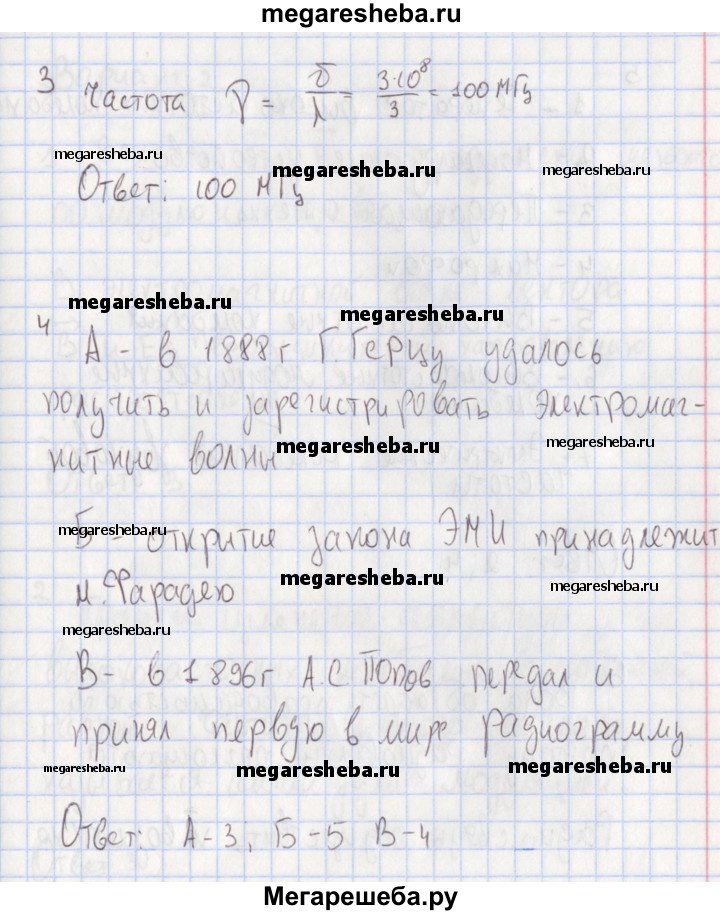 megaresheba.ru
3 Частота ν = υ/λ = 3·10⁸/3 = 100 МГц
megaresheba.ru
megaresheba.ru
megaresheba.ru
Ответ: 100 МГц
megaresheba.ru
megaresheba.ru
4 А - в 1888г Г.Герцу удалось
получить и зарегистрировать электромаг-
megaresheba.ru
megaresheba.ru
megaresheba.ru
нитные волны
megaresheba.ru
Б - открытие закона ЭМИ принадлежит
megaresheba.ru
megaresheba.ru
М.Фарадею
megaresheba.ru
В - в 1896г А.С Попов передал и
принял первую в мире радиограмму
megaresheba.ru
megaresheba.ru
megaresheba.ru
Ответ: А-3, Б-5 В-4
Мегарешеба.ру